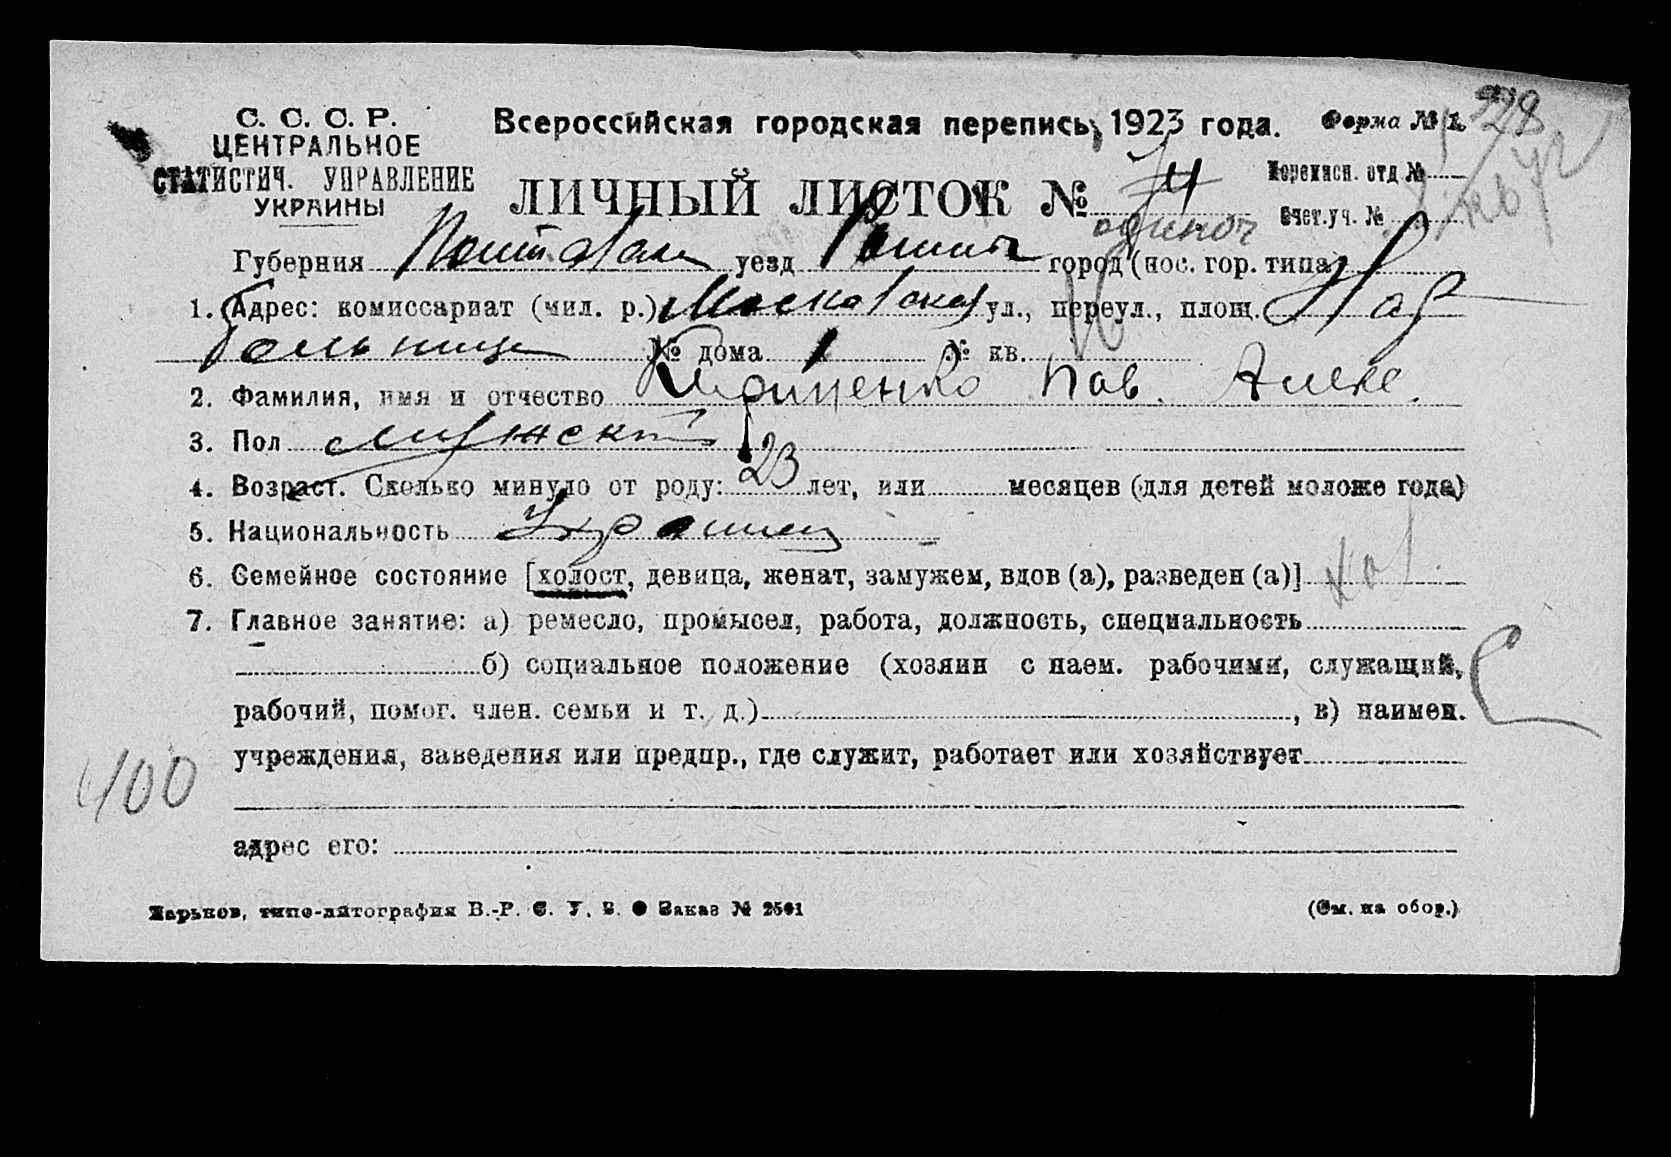 С. С. С. Р.
ЦЕНТРАЛЬНОЕ
СТАТИСТИЧ. УПРАВЛЕНИЕ
УКРАИНЫ
Всероссийская городская перепись, 1923 года. Форма № 1.
228
ЛИЧНЫЙ ЛИСТОК № 74
Переписн. отд №
Счет. уч. №
одиноч
Губерния Полтавская уезд Ромны город (пос. гор. типа)
1. Адрес: комиссариат (мил. р.) Московская ул., переул., площ. Нар
больница № дома 1 № кв.
2. Фамилия, имя и отчество Пав. Алекс.
3. Пол мужской
4. Возраст. Сколько минуло от роду: 23 лет, или месяцев (для детей моложе года)
5. Национальность Украинец
6. Семейное состояние [холост, девица, женат, замужем, вдов (а), разведен (а)]
7. Главное занятие: а) ремесло, промысел, работа, должность, специальность
б) социальное положение (хозяин с наем. рабочими, служащий,
рабочий, помог. член. семьи и т. д.), в) наимен.
учреждения, заведения или предпр., где служит, работает или хозяйствует
400
адрес его:
Харьков, типо-литография В.-Р. С. У. В. ● Заказ № 2501
(См. на обор.)